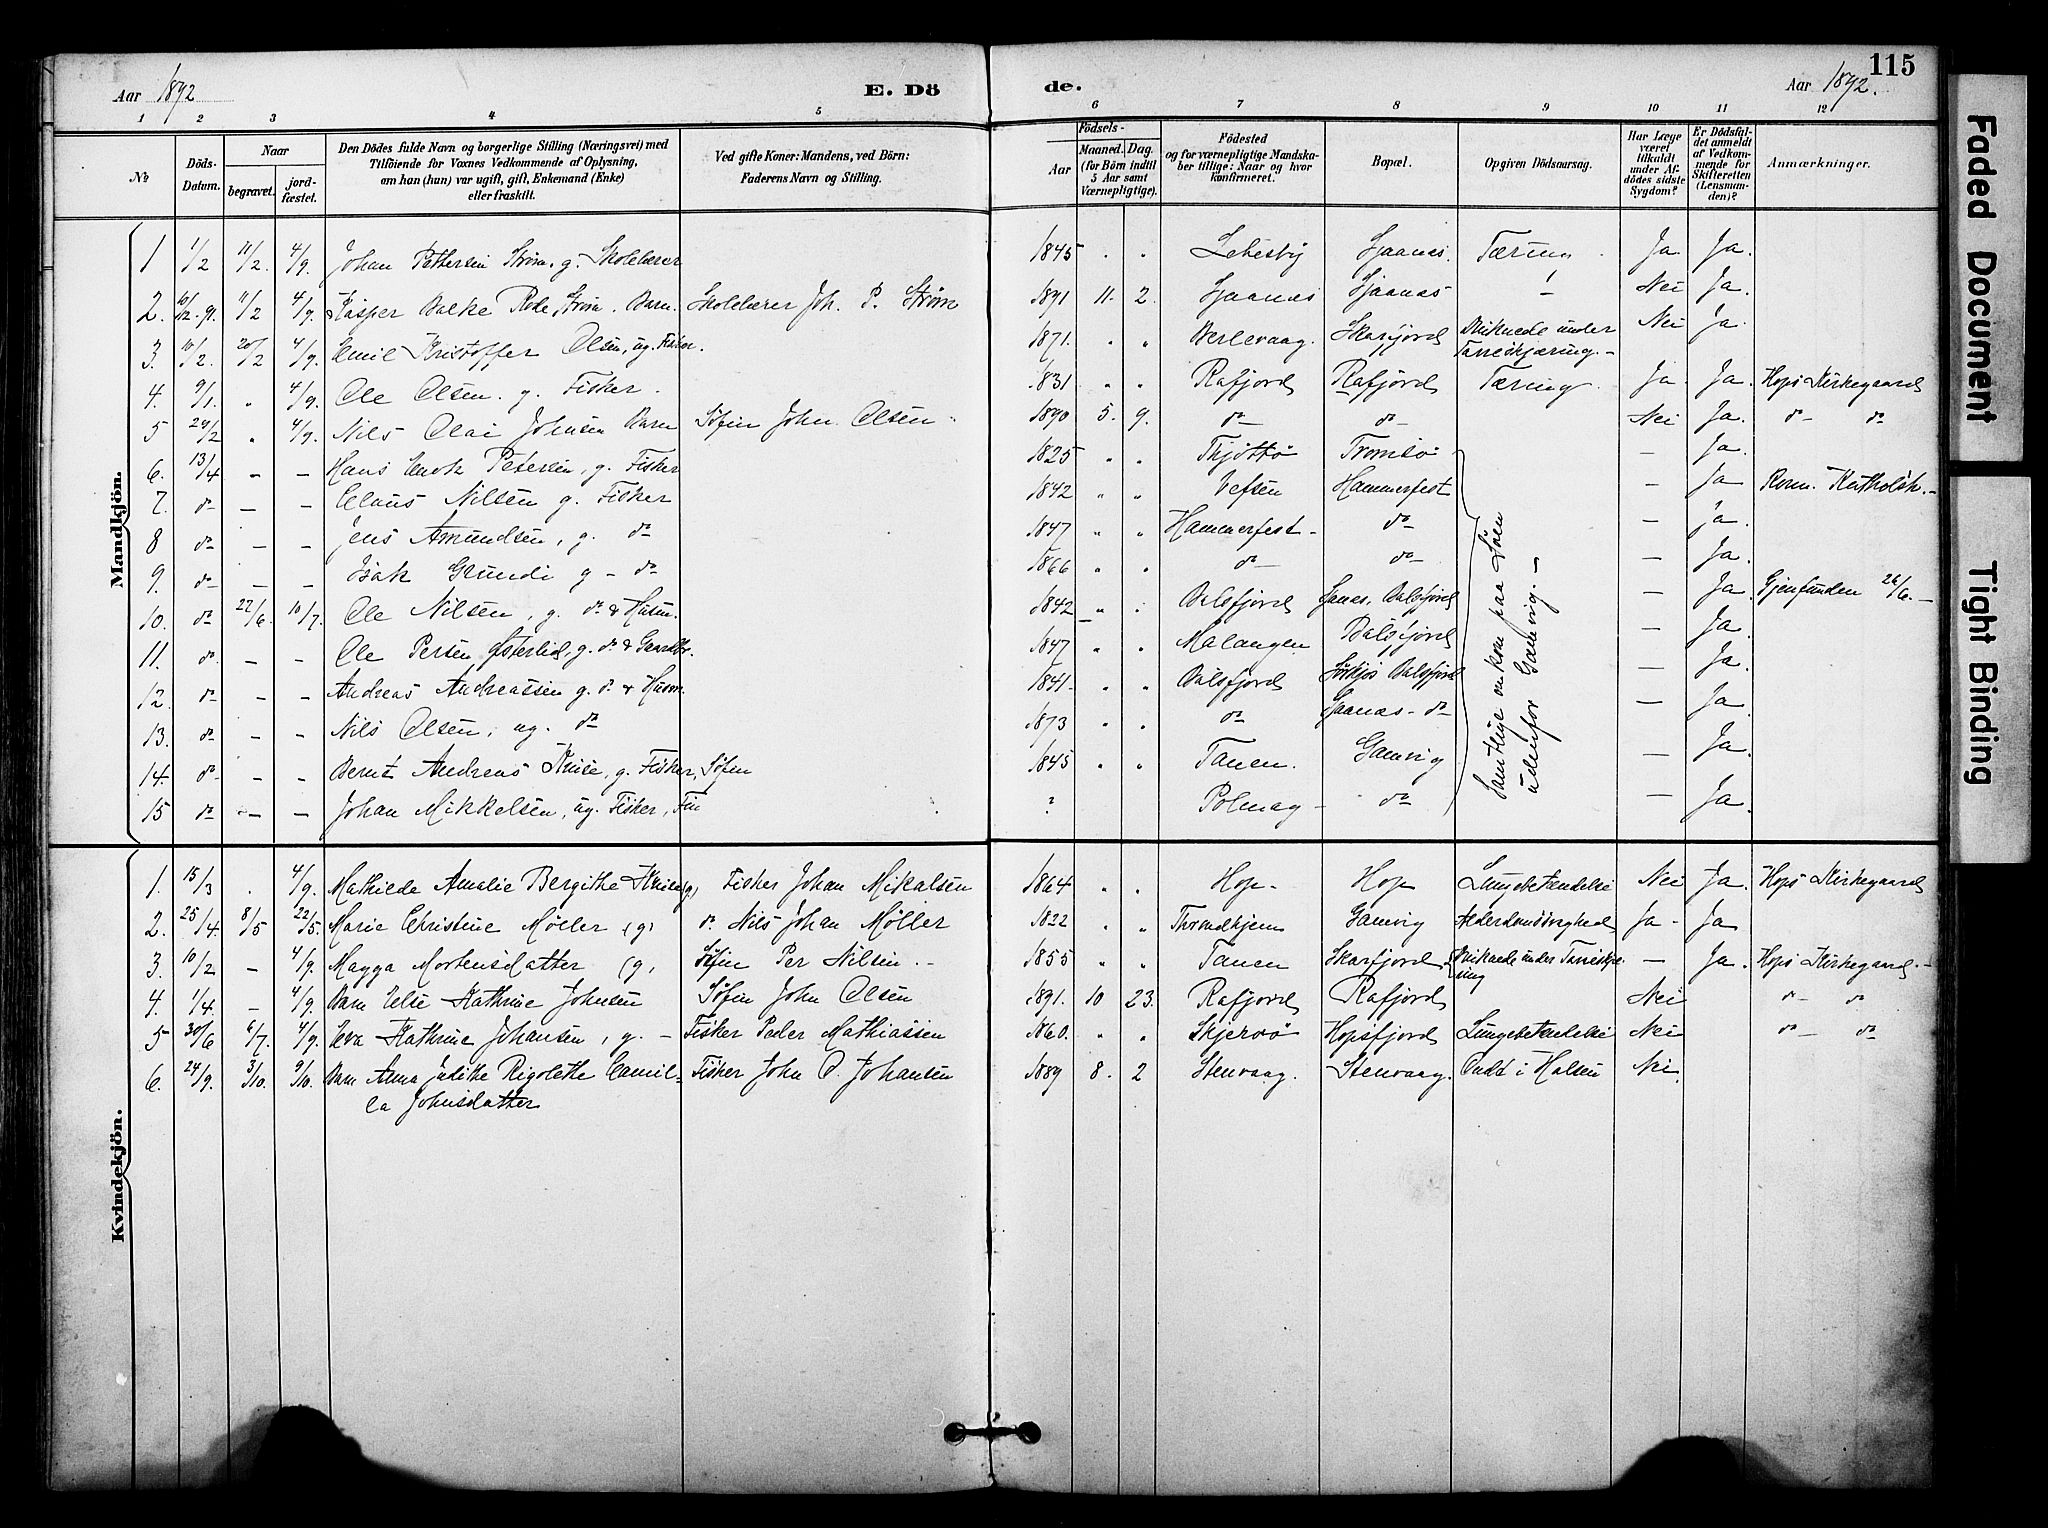 115
Aar 1892
E. Dö
de.
Aar 1892.
1 2 3 4 5 6 7 8 9 10 11 12
No
Döds-Datum.
Naar
begravet.
jordfæstet.
Den Dödes fulde Navn og borgerlige Stilling (Næringsvei) med
Tilföiende for Voxnes Vedkommende af Oplysning,
om han (hun) var ugift, gift, Enkemand (Enke)
eller fraskilt.
Ved gifte Koner: Mandens, ved Börn:
Faderens Navn og Stilling.
Födsels-
Aar
Maaned. Dag.
(for Börn indtil
5 Aar samt
Værnepligtige).
Födested
og for værnepligtige Mandskaber
tillige: Naar og hvor
konfirmeret.
Bopæl.
Opgiven Dödsaarsag.
Har Læge
været
tilkaldt
under Afdödes
sidste
Sygdom?
Er Dödsfaldet
anmeldt
af Vedkommende
for
Skifteretten
(Lensmanden)?
Anmærkninger.
Mandkjön.
1 1/2 11/2. 4/9. Johan Pettersen Strøm. g. Skolelærer 1845 " " Lebesby Tæring Ja Ja.
2. 11/2 4/9. Kasper Balke Rode Strøm. Barn. Skolelærer Joh. P. Strøm 1891 11. 2. Nei Ja.
3. 10/2. 20/2 4/9. Emil Kristoffer Olsen, ug. Fisker. 1871. " " Berlevaag. Skarfjord Druknede under Tareskjæring. Nei Ja.
4. 9/1. " 4/9. Ole Olsen. g. Fisker. 1831 " " Rafjord Rafjord Tæring. Ja. Ja. Hops Kirkegaard
5 24/2 " 4/9. Nils Olai Johnsen Barn Søfin John Olsen 1890 5. 9. do do Nei Ja. do do
6. 13/4 - - Hans Petersen, g. Fisker 1825 " " Thjøttø Tromsø - Ja.
7. do - - Claus Nilsen g. Fisker 1842 " " Vefsen Hammerfest - Ja Rom. Katholik.
8 do - - Jens Amundsen, g. do 1847 " " Hammerfest do - ja.
9. do - - Isak Grundi g - do 1866 " " do do - Ja.
10. do 22/6. 10/7. Ole Nilsen, g. do & Husm. 1842 " " Balsfjord Balsfjord - Ja. Gjenfunden 26/6.
11. do - - Ole Persen Østerlid, g. do & Gaardbr. 1847 " " Malangen Balsfjord - Ja.
12. do - - Andreas Andreassen g. do & Husm. 1841. " " Balsfjord Balsfjord - Ja.
13. do - - Nils Olsen, ug. do 1873 " " do do - Ja.
14. do - - Bernt Andreas g. Fisker, Søfin 1845 " " Tanen. Gamvig - Ja.
15 do - - Johan Mikkelsen, ug. Fisker, Fin ? Polmag do - Ja.
Samtlige omkom paa Søen
udenfor Gamvig.
Kvindekjön.
1. 15/3 " 4/9. Mathilde Amalie Bergithe (g) Fisker Johan Mikalsen 1864 " " Hop Hop Lungebetændelse Nei Ja. Hops Kirkegaard
2. 25/4. 8/5 22/5. Marie Christine Møller (g) do Nils Johan Møller 1822 " " Throndhjem Gamvig Alderdomssvaghed Ja Ja
3. 10/2 - 4/9. Magga Mortensdatter (g, Søfin Per Nilsen 1855 " " Tanen Skarfjord Druknede under Tareskjæring - Ja. Hops Kirkegaard
4. 1/4. - 4/9. Barn Else Kathrine Johnsen Søfin John Olsen 1891. 10 23. Rafjord Rafjord Nei do do
5 30/6 6/7. 4/9. Eva Kathrine Johansen, g. - Fisker Peder Mathiassen 1860. " " Skjervø Hopsfjord Lungebetændelse Nei do do
6. 24/9. 3/10. 9/10. Barn Anna Judithe Rigolethe Camil- Fisker John O. Johansen 1889 8. 2 Stenvaag. Stenvaag. Ondt i Halsen Nei
la Johnsdatter
Faded Document
Tight Binding